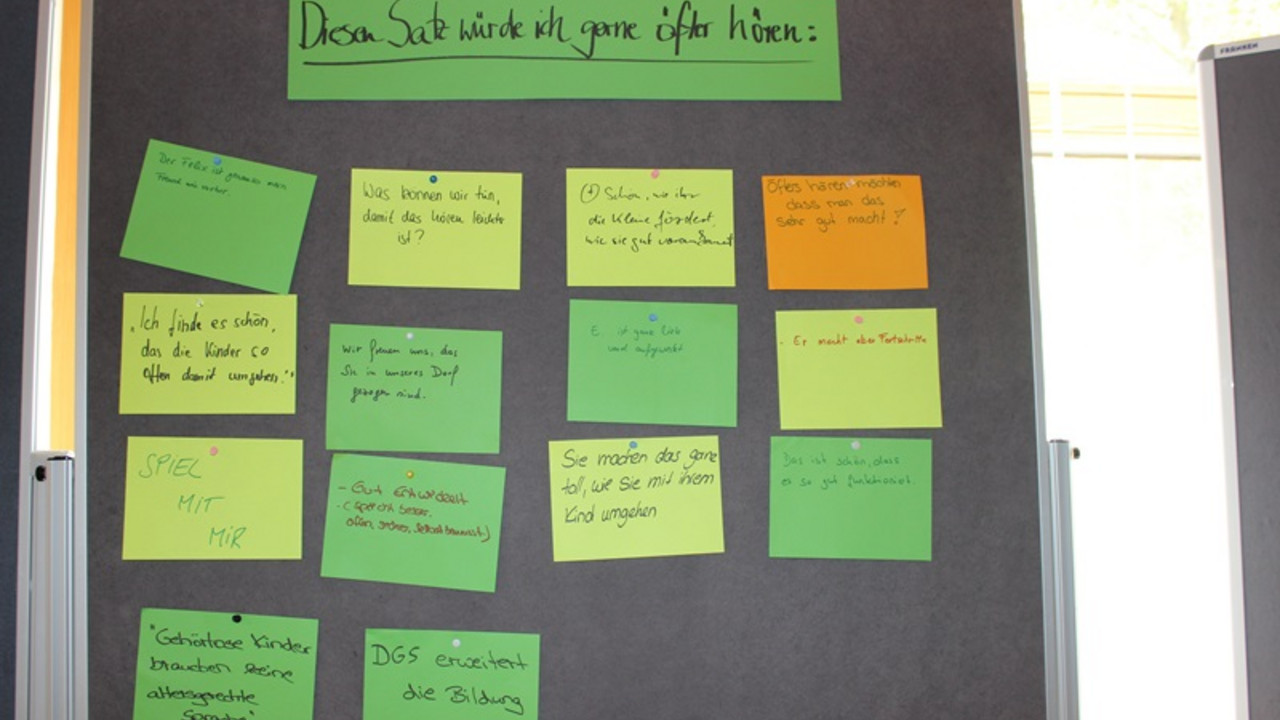 Diesen Satz würde ich gerne öfter hören:
Der Felix ist genauso mein
Freund wie vorher.
Was können wir tun,
damit das hören leichter
ist?
(+) Schön, wie ihr
die Kleine fördert,
wie sie gut vorankommt
Öfters hören möchten
dass man das
sehr gut macht!
"Ich finde es schön,
das die Kinder so
offen damit umgehen."
Wir freuen uns, das
Sie in unseres Dorf
gezogen sind.
E. ist ganz lieb
und aufgeweckt
Er macht aber Fortschritte
SPIEL
MIT
MIR
- Gut entwickelt
- (spricht besser,
offen, sicherer, selbstbewusst)
Sie machen das ganz
toll, wie Sie mit ihrem
Kind umgehen
Das ist schön, dass
es so gut funktioniert.
"Gehörlose Kinder
brauchen keine
altersgerechte
Sprache"
DGS erweitert
die Bildung
FRANKEN